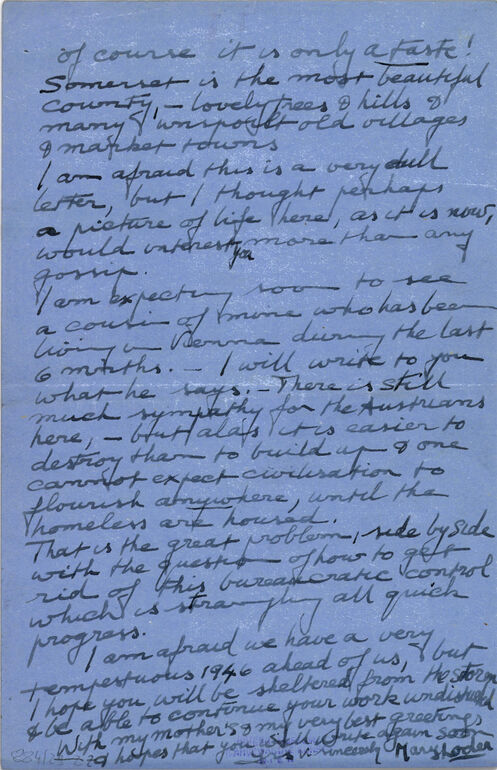 of course it is only a taste!
Somerset is the most beautiful
county, – lovely trees & hills &
many unspoilt old villages
& market towns
I am afraid this is a very dull
letter, but I thought perhaps
a picture of life here, as it is now,
would interest you more than any
gossip.
I am expecting soon to see
a cousin of mine who has been
living in Vienna during the last
6 months. – I will write to you
what he says. – There is still
much sympathy for the Austrians
here, – but alas it is easier to
destroy than to build up & one
cannot expect civilisation to
flourish anywhere, until the
homeless are housed.
That is the great problem, side by side
with the question of how to get
rid of this bureaucratic control
which is strangling all quick
progress.
I am afraid we have a very
tempestuous 1946 ahead of us, but
I hope you will be sheltered from the storm
& be able to continue your work undisturbed
With my mother's & my very best greetings
& hopes that you will write again soon
sincerely Mary